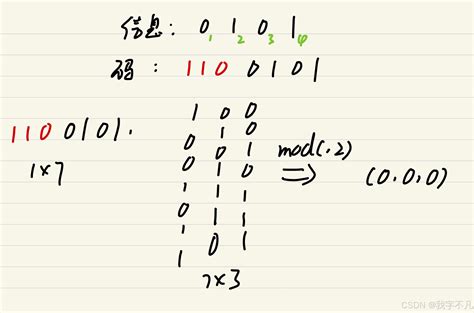 信息: 0 1 0 1
1 2 3 4
码: 110 0101
1100101.
1×7
1 0 0
0 1 0
0 0 1
0 1 0
1 1 1
0 1 1
1 0 1
7×3
mod(.2)
⇒
(0.0.0)
CSDN @我字不凡